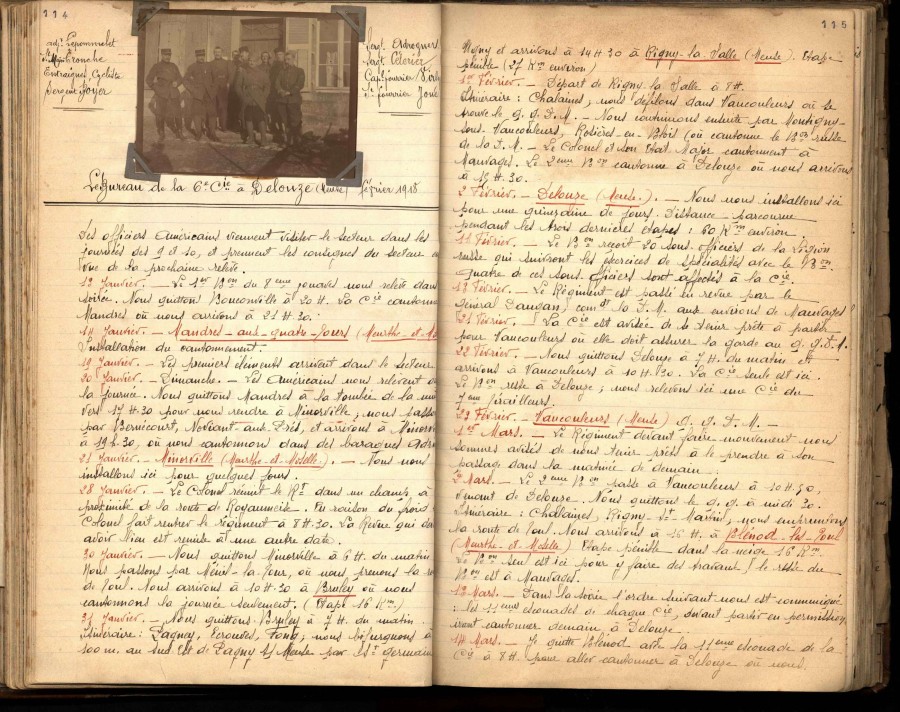 114
adjt Lepommelet
Entraignes Cycliste
Sergent Foyer
Sergt
Sergt Célerier
Cap. fourrier
Le Bureau de la 6e Cie à Delouze (Meuse) février 1918
Les officiers Américains viennent visiter le secteur dans les
journées des 9 et 10, et prennent les consignes du secteur en
vue de la prochaine relève.
13 Janvier. — Le 1er Bon du 8eme zouaves nous relève dans
soirée. Nous quittons Bouconville à 20 H. La Cie cantonne
Mandres où nous arrivons à 21 H. 30.
14 Janvier. — Mandres-aux-quatre-Tours (Meurthe-et-Mo
Installation du cantonnement.
19 Janvier. — Les premiers éléments arrivent dans le secteur.
20 Janvier. — Dimanche. — Les Américains nous relèvent d
la journée. Nous quittons Mandres à la tombée de la nui
vers 17 H. 30 pour nous rendre à Minorville ; nous passo
par Bernécourt, Noviant-aux-Prés, et arrivons à Minorv
à 19 h. 30, où nous cantonnons dans des baraques Adri
21 Janvier. — Minorville (Meurthe-et-Moselle.). — Nous nous
installons ici pour quelques jours.
28 Janvier. — Le Colonel réunit le Rt dans un champ à
proximité de la route de Royaumeix. En raison du froid
Colonel fait rentrer le régiment à 8 H. 30. La Revue qui de
avoir lieu est remise à une autre date.
30 Janvier. — Nous quittons Minorville à 6 H. du matin
Nous passons par Ménil-la-Tour, où nous prenons la ro
de Toul. Nous arrivons à 10 H. 30 à Bruley où nous
cantonnons la journée seulement. (Etape 16 Km.)
31 Janvier. — Nous quittons Bruley à 7 H. du matin.
Itinéraire : Pagney, Ecrouves, Foug ; nous bifurquons à
500 m. au Sud Est de Pagny s/ Meuse par St germain
115
Ugny et arrivons à 14 H 30 à Rigny-la-Salle (Meuse). Etape
pénible (27 Km environ)
1er Février. — Départ de Rigny la Salle à 8 H.
Itinéraire : Chalaines ; nous défilons dans Vaucouleurs où se
trouve le G. Q. D. M. — Nous continuons ensuite par Montigny-
sous-Vaucouleurs, Rosières-en-Blois (où cantonne le Bon russe
de la D. M. — Le Colonel et son Etat Major cantonnent à
Mauvages. Le 2eme Bon cantonne à Delouze où nous arrivons
à 13 H. 30.
2 Février. — Delouze (Meuse.). — Nous nous installons ici
pour une quinzaine de jours. Distance parcourue
pendant les trois dernières étapes : 60 Km environ.
11 Février. — Le Bon reçoit 20 sous-officiers de la Légion
russe qui suivront les exercices de spécialités avec le Bon.
Quatre de ces sous-officiers sont affectés à la Cie.
18 Février. — Le Régiment est passé en revue par le
général Daugan, comdt la D. M. aux environs de Mauvages
21 Février. — La Cie est avisée de se tenir prête à partir
pour Vaucouleurs où elle doit assurer la garde au
22 Février. — Nous quittons Delouze à 7 H. du matin et
arrivons à Vaucouleurs à 10 H. 30. La Cie seule est ici.
Le Bon reste à Delouze ; nous relevons ici une Cie du
7eme Tirailleurs.
23 Février. — Vaucouleurs (Meuse)
1er Mars. — Le Régiment devant faire mouvement nous
sommes avisés de nous tenir prêts à le prendre à son
passage dans la matinée de demain.
2 Mars. — Le 2eme Bon passe à Vaucouleurs à 10 H. 30,
venant de Delouze. Nous quittons le G. Q. à midi 30.
Itinéraire : Chalaines, Rigny-St-Martin, nous empruntons
la route de Toul. Nous arrivons à 16 H. à Blénod-les-Toul
(Meurthe-et-Moselle) Etape pénible dans la neige 16 Km.
Le Bon seul est ici pour y faire des travaux ; le reste du
Bon est à Mauvages.
13 Mars. — Dans la soirée l'ordre suivant nous est communiqué
: les 11eme escouades de chaque Cie, devant partir en permission,
iront cantonner demain à Delouze.
14 Mars. — Je quitte Blénod avec la 11eme escouade de la
Cie à 8 H. pour aller cantonner à Delouze où nous